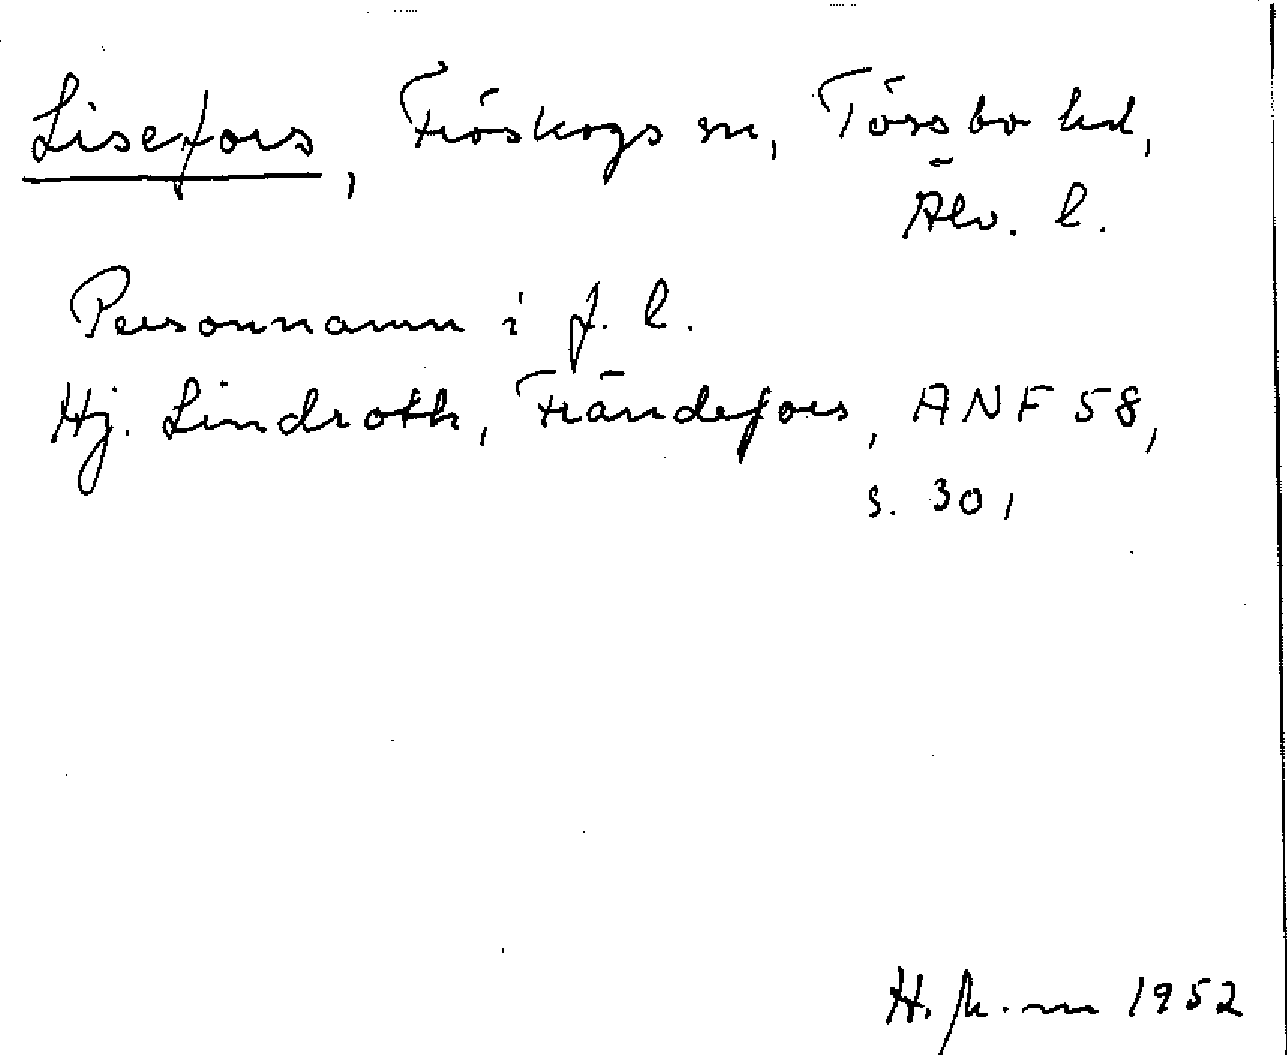 Lisefors, Fröskogs sn, Tössbo hd,
Älv. l.
Personnamn i f. l.
Hj. Lindroth, Frändefors, ANF 58,
s. 30,
1952